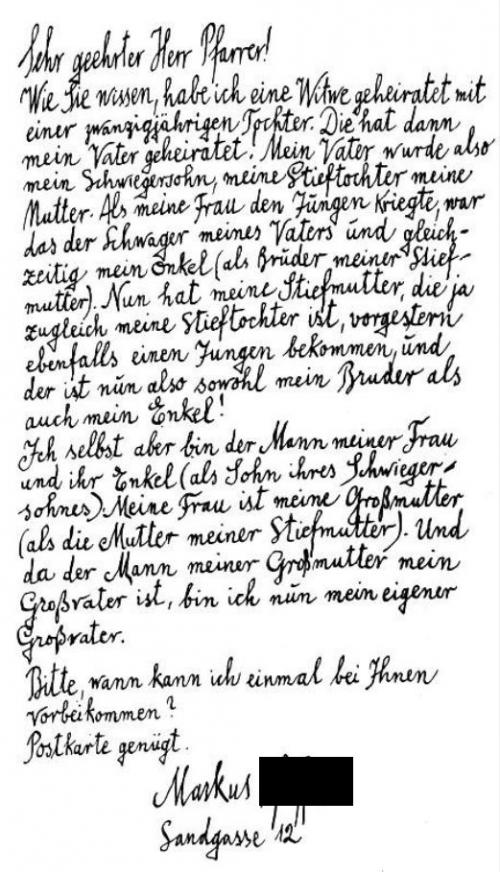 Sehr geehrter Herr Pfarrer!
Wie Sie wissen, habe ich eine Witwe geheiratet mit
einer zwanzigjährigen Tochter. Die hat dann
mein Vater geheiratet. Mein Vater wurde also
mein Schwiegersohn, meine Stieftochter meine
Mutter. Als meine Frau den Jungen kriegte, war
das der Schwager meines Vaters und gleich-
zeitig mein Enkel (als Bruder meiner Stief-
mutter). Nun hat meine Stiefmutter, die ja
zugleich meine Stieftochter ist, vorgestern
ebenfalls einen Jungen bekommen, und
der ist nun also sowohl mein Bruder als
auch mein Enkel!
Ich selbst aber bin der Mann meiner Frau
und ihr Enkel (als Sohn ihres Schwieger-
sohnes). Meine Frau ist meine Großmutter
(als die Mutter meiner Stiefmutter). Und
da der Mann meiner Großmutter mein
Großvater ist, bin ich nun mein eigener
Großvater.
Bitte, wann kann ich einmal bei Ihnen
vorbeikommen?
Postkarte genügt.
Markus
Sandgasse 12